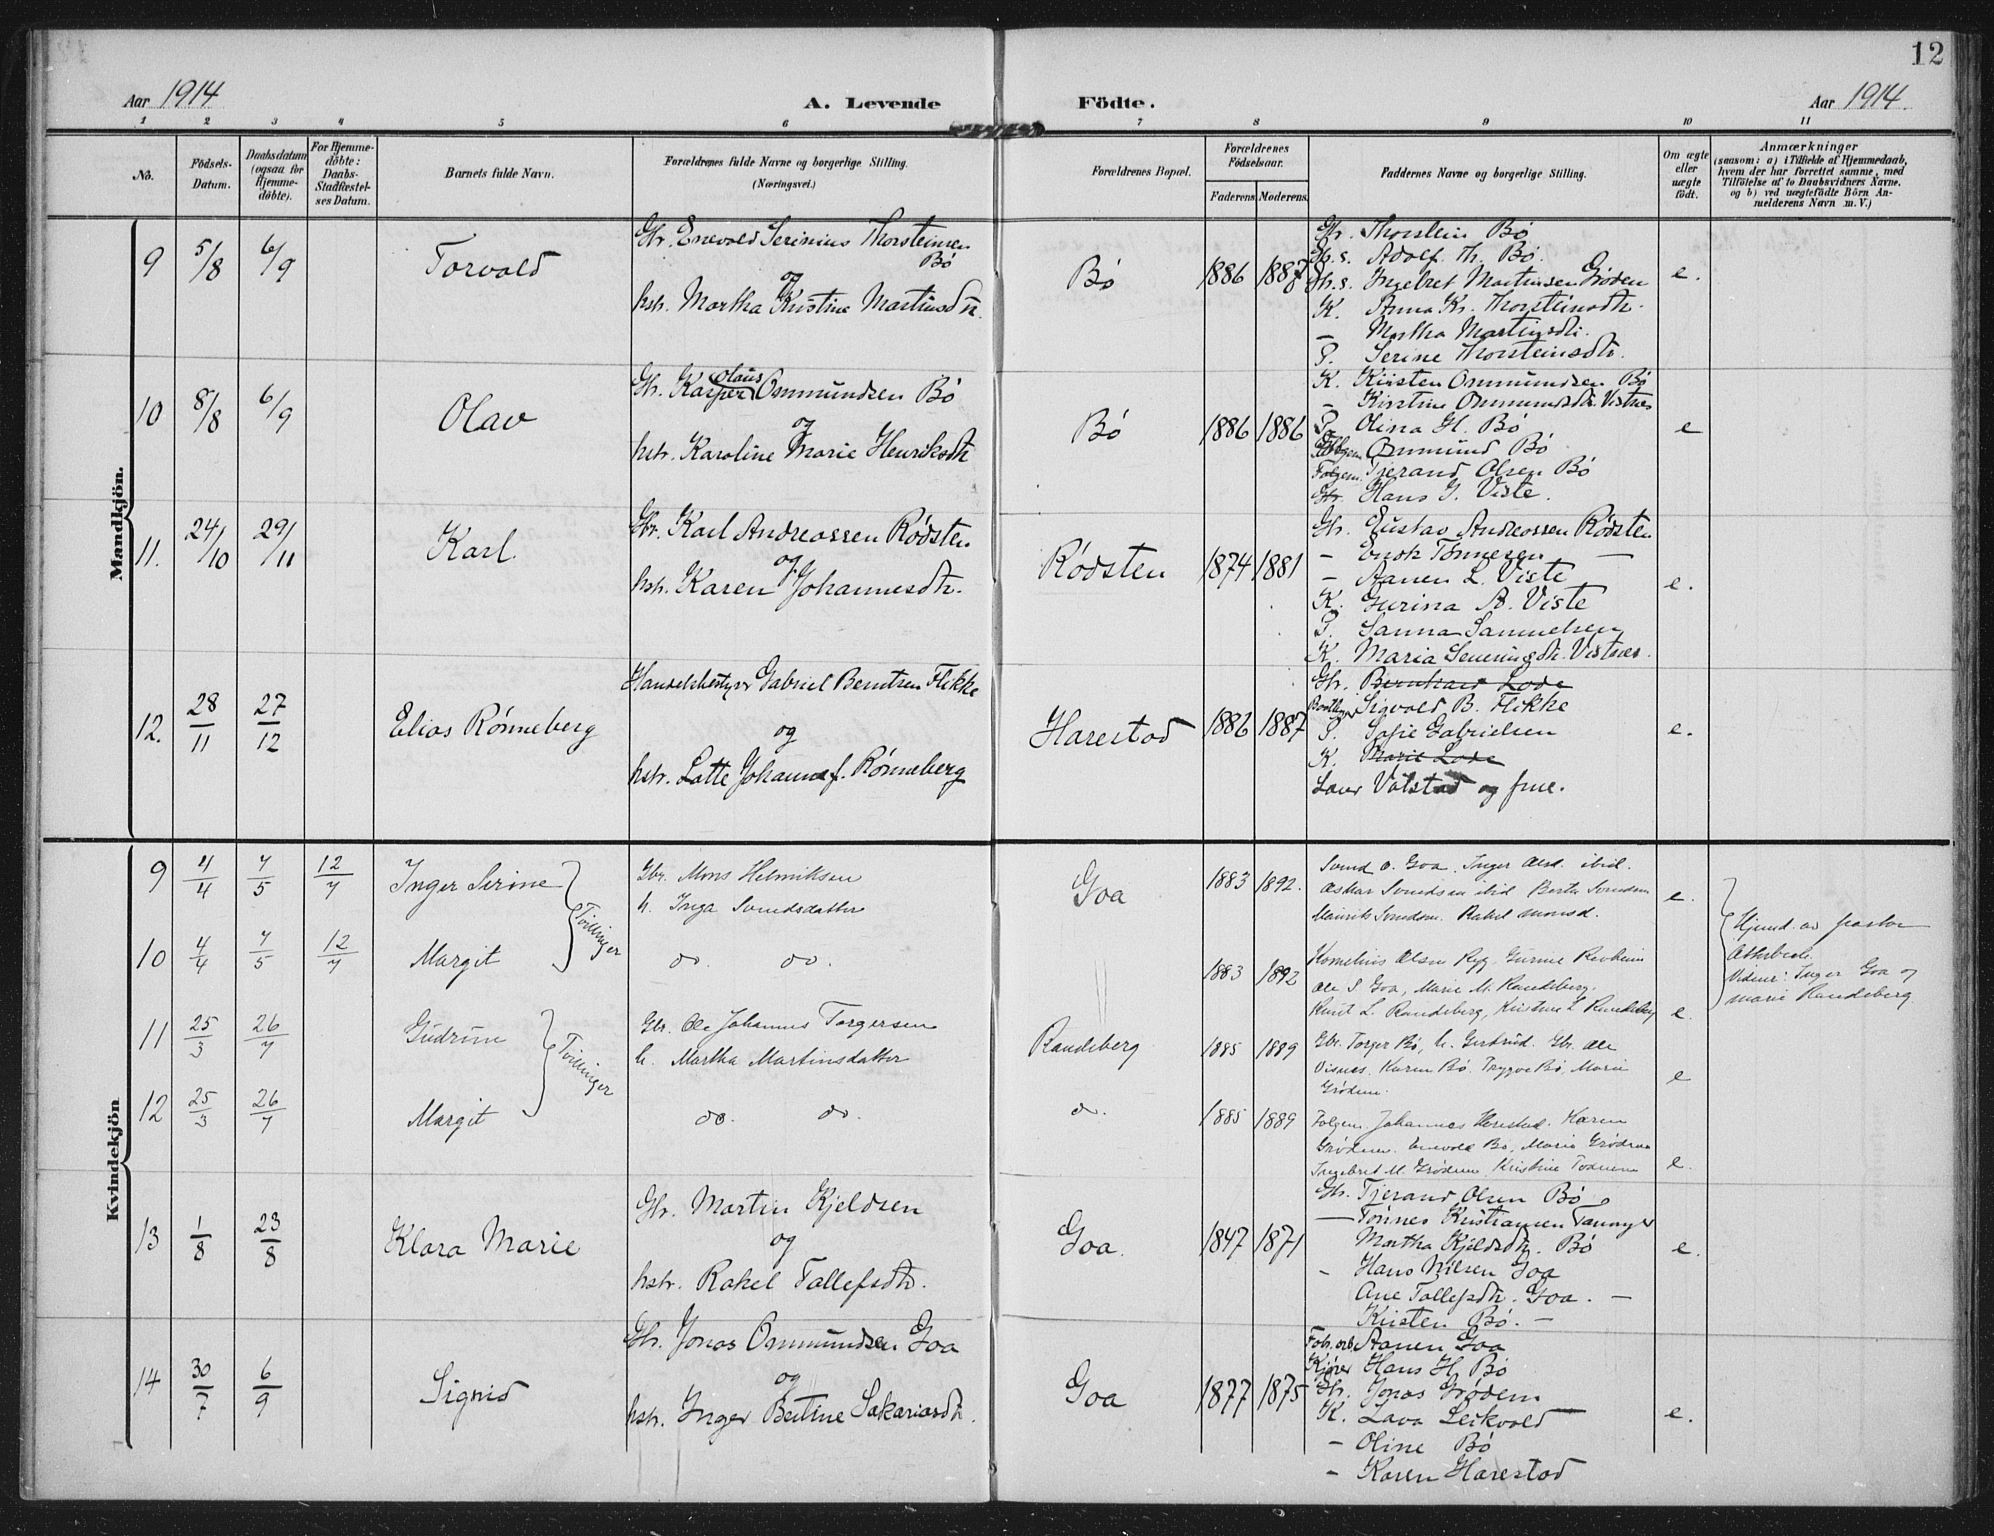 12
Aar 1914
A. Levende Födte.
Aar 1914
1 2 3 4 5 6 7 8 9 10 11
No.
Födsels-Datum.
Daabsdatum (ogsaa for Hjemme-döbte).
For Hjemme-döbte: Daabs-Stadfæstel-ses Datum.
Barnets fulde Navn.
Forældrenes fulde Navne og borgerlige Stilling.
(Næringsvei.)
Forældrenes Bopæl.
Forældrenes Födselsaar.
Faderens Moderens.
Faddernes Navne og borgerlige Stilling.
Om ægte eller uægte födt.
Anmærkninger
(saasom: a) i Tilfælde af Hjemmedaab,
hvem der har forrettet samme, med
Tilföielse af to Daabsvidners Navne.
og b) ved uægtefödte Börn An-
melderens Navn m. V.)
Mandkjön.
9 5/8 6/9 Torvald
Gbr. Enevold Serinius Thorsteinsen
Bö
og
hstr. Martha Kristine Martinsdtr.
Bö 1886 1887 e.
Gbr. Thorstein Bö
Gbr. s. Adolf Th. Bö.
Gbr. s. Ingebret Martinsen Gröden
K. Anna Kr. Thorsteinsdtr.
— Martha Martinsdtr.
P. Serine Thorsteinsdtr.
10 8/8 6/9 Olav
Gbr. Kasper Olaus Ommundsen Bö
og
hstr. Karoline Marie Henriksdtr
Bö 1886 1886 e
K. Kirsten Ommundsen Bö
— Kirstine Ommundsdtr. Vistnes
P. Olina H. Bö
Ommund Bö
Folgem. Tjerand Olsen Bö
Gbr. Hans J. Viste.
11. 24/10 29/11 Karl.
Gbr. Karl Andreassen Rödsten
og
hstr. Karen Johannesdtr.
Rödsten 1874 1881 e.
Gbr. Gustav Andreassen Rödsten
— Enok Tönnesen —
— Aanen L. Viste
K. Gurina A. Viste
P. Sanna Samuelsen
K. Maria Severinsdtr. Vistnes.
12. 28/11 27/12 Elias Rönneberg
Handelsbestyrer Gabriel Berntsen Flikke
og
hstr. Lotte Johanne f. Rönneberg
Harestad 1886 1887 e.
Gbr. Bernhard Lode
Sigvald B. Flikke
P. Sofie Gabrielsen
K. Marie Lode
Volstad og frue.
Kvindekjön
9 4/4 7/5 12/7 Inger Serine
Tvillinger
Gbr. Mons Helmiksen
h. Inga Svendsdatter
Goa 1883 1892. e.
Svend O. Goa. Inger Olsd. ibid.
Oskar Svendsen ibid Berta Svendsen
Maurits Svendsen. Rakel Monsd.
10 4/4 7/5 12/7 Margit
do. do.
1883 1892 e.
Kornelius Olsen Ryg. Gurine Revheim
Ole S Goa, Marie M. Randeberg.
Knut L. Randeberg, Kristine L Randeberg
Hjemd. av pastor
Vidner: Inger Goa og
Marie Randeberg
11 25/3 26/7 Gudrun
Tvillinger
Gbr. Ole Johannes Torgersen
h. Martha Martinsdatter
Randeberg 1885 1889 e
Gbr. Torger Bö, h. Gertrud. Gbr. Ole
Visnes. Karen Bö. Trygve Bö, Marie
Grödem.
12 25/3 26/7 Margit
do. do.
do. 1885 1889 e.
Folgem. Johannes Harestad. Karen
Grödem. Enevold Bö, Marie Grödem
Ingebret M. Grödem, Kristine Todnem
13 1/8 23/8 Klara Marie
Gbr. Martin Kjeldsen
og
hstr. Rakel Tollefsdtr.
Goa. 1847 1871 e.
Gbr. Tjerand Olsen Bö
— Tönnes Kristiansen Tananger
Martha Kjeldsdtr. Bö
— Hans Nilsen Goa
Ane Tollefsdtr. Goa. —
Kirsten Bö. —
14 30/7 6/9 Signid
Gbr. Jonas Ommundsen Goa
og
hstr. Inger Bertine Sakariasdtr.
Goa 1877 1875 e.
Fabr. arb. Aanen Goa
Hans H. Bö
Gbr. Jonas Grödem
K. Lava Leikvold
— Oline Bö
— Karen Harestad